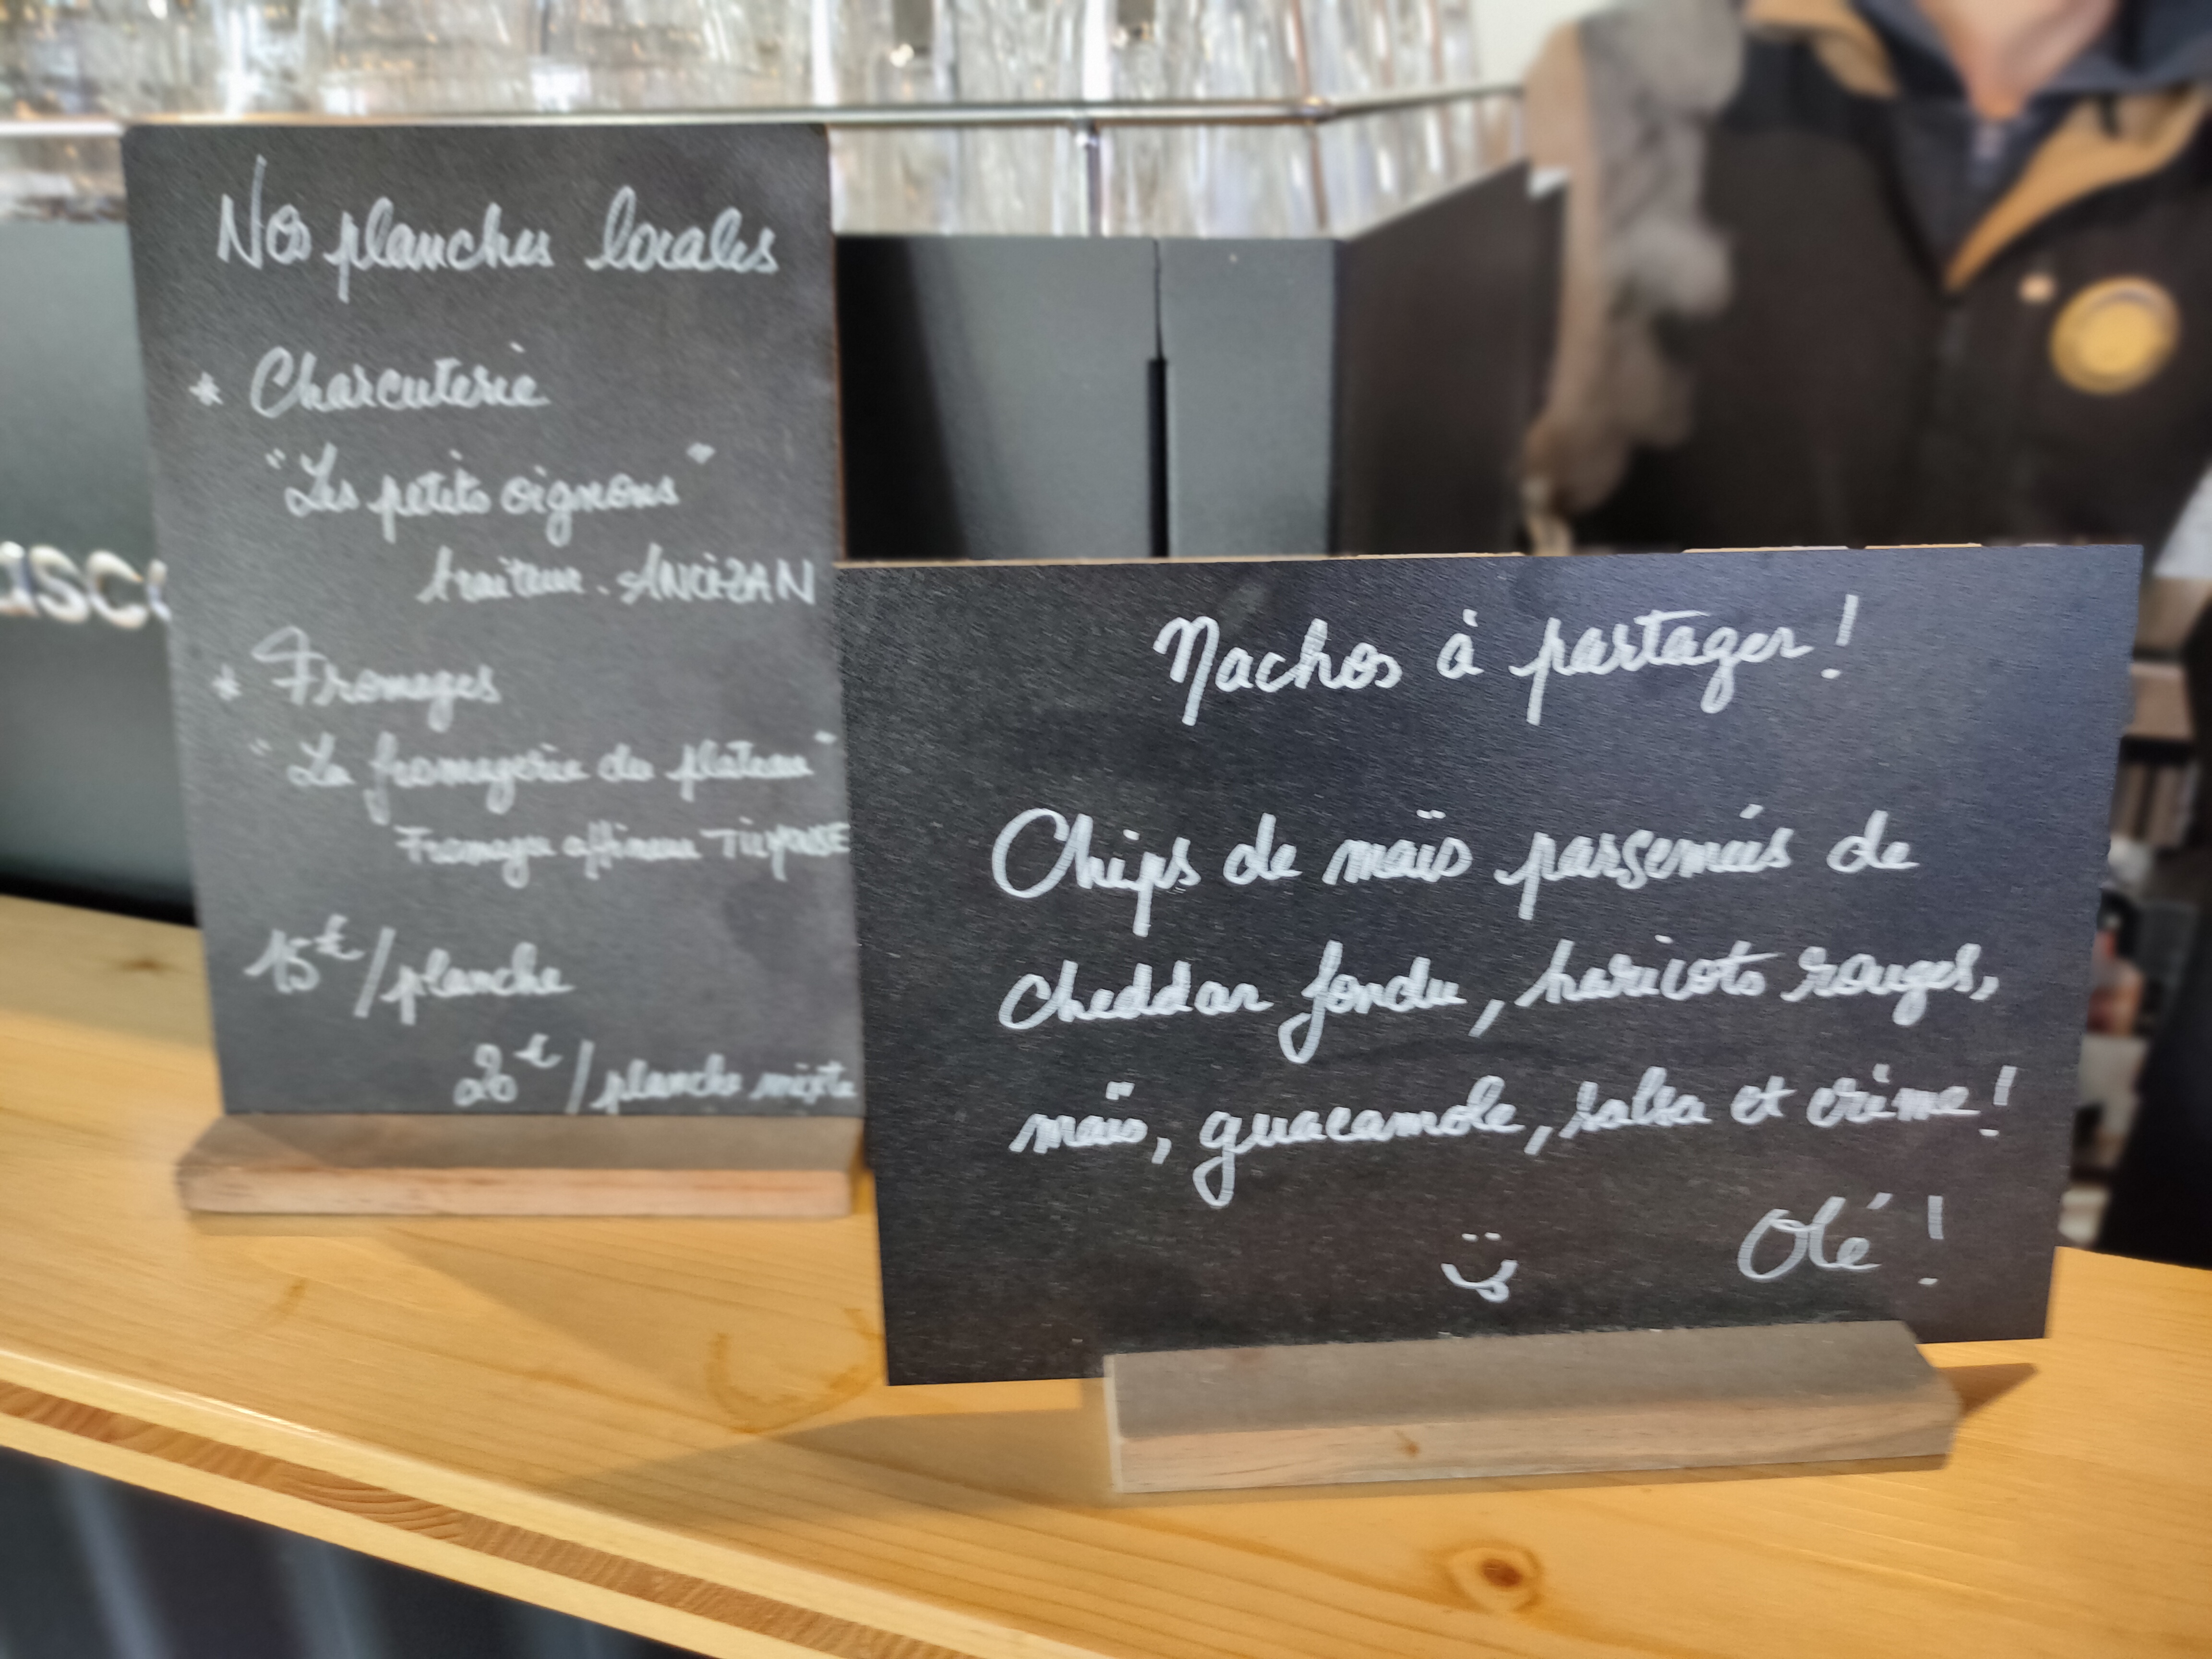 Nos planches locales
* Charcuterie
"Les petits oignons"
traiteur - ANCIZAN
* Fromages
"La fromagerie du plateau"
Fromager affineur
15€/planche
20€/planche mixte
Nachos à partager !
Chips de maïs parsemées de
cheddar fondu, haricots rouges,
maïs, guacamole, salsa et crème !
Olé !